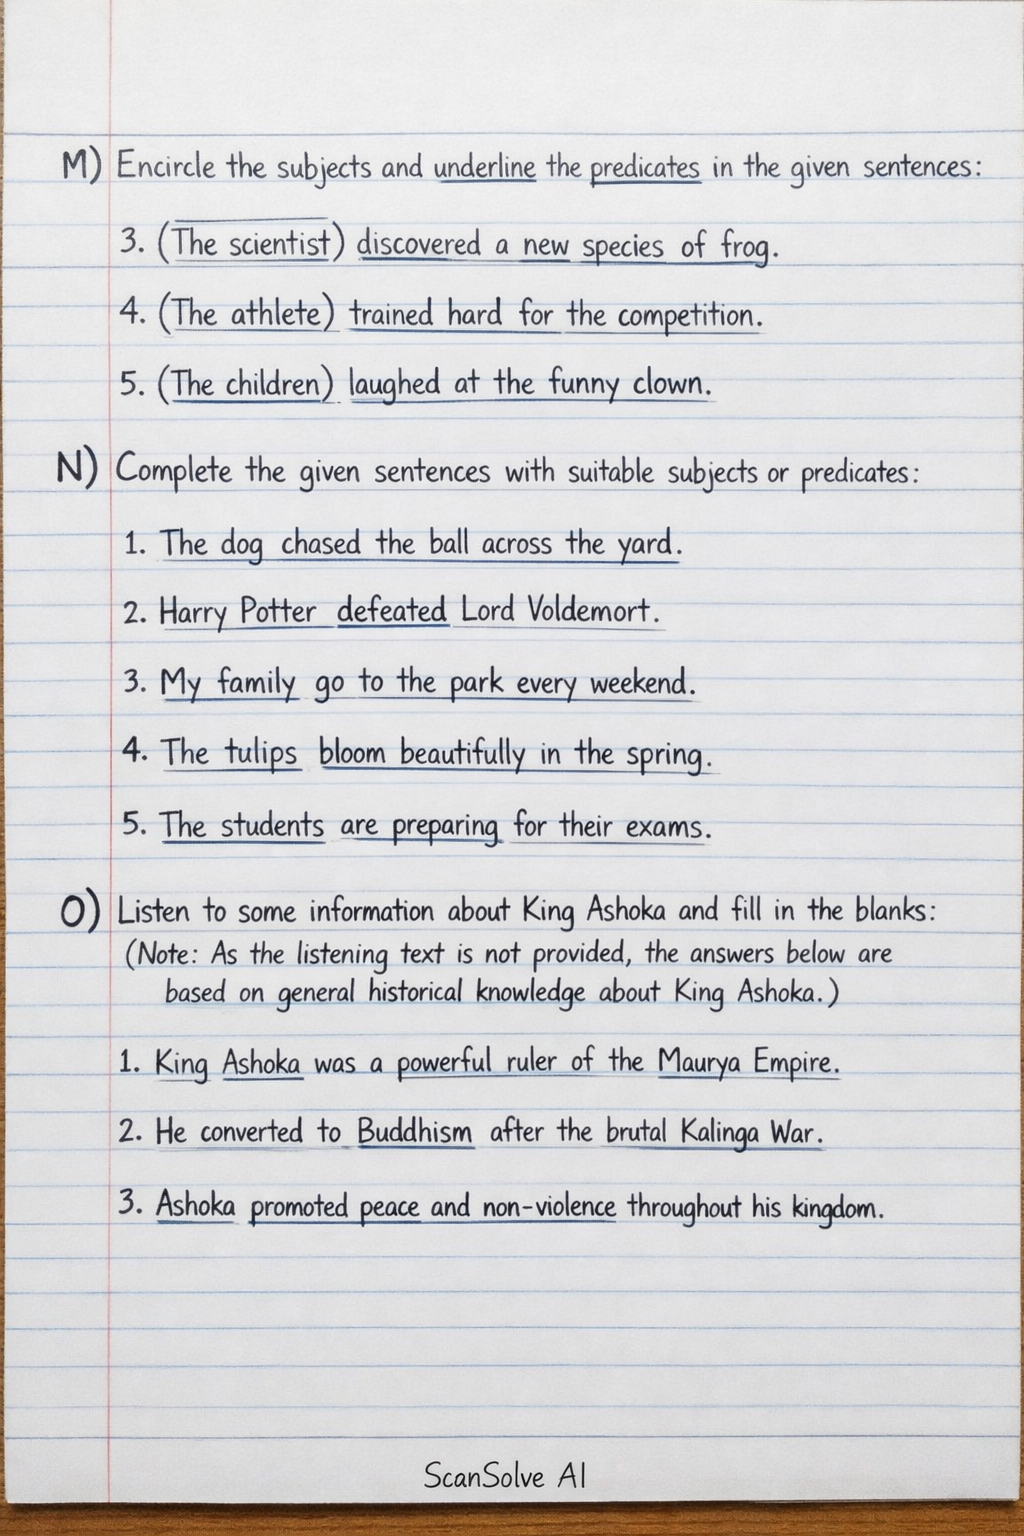 M) Encircle the subjects and underline the predicates in the given sentences:
3. (The scientist) discovered a new species of frog.
4. (The athlete) trained hard for the competition.
5. (The children) laughed at the funny clown.
N) Complete the given sentences with suitable subjects or predicates:
1. The dog chased the ball across the yard.
2. Harry Potter defeated Lord Voldemort.
3. My family go to the park every weekend.
4. The tulips bloom beautifully in the spring.
5. The students are preparing for their exams.
O) Listen to some information about King Ashoka and fill in the blanks:
(Note: As the listening text is not provided, the answers below are
based on general historical knowledge about King Ashoka.)
1. King Ashoka was a powerful ruler of the Maurya Empire.
2. He converted to Buddhism after the brutal Kalinga War.
3. Ashoka promoted peace and non-violence throughout his kingdom.
ScanSolve AI